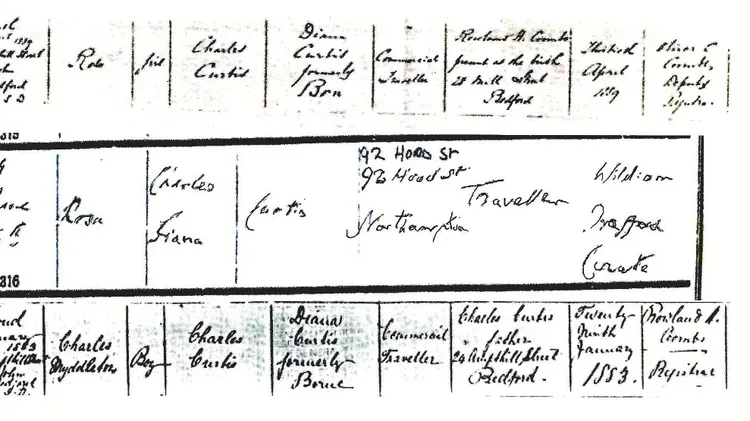 Rose
Girl
Charles
Curtis
Diana
Curtis
formerly
Born
Commercial
Traveller
Rowland H. Coombs
present at the birth
Mill Street
Bedford
Thirtieth
April
1889
Oliver C
Coombs
Deputy
Registrar
Rosa
Charles
Diana
Curtis
92 HOOD ST
92 Hood St
Northampton
Traveller
William
Trafford
Curate
316
Charles
Myddleton
Boy
Charles
Curtis
Diana
Curtis
formerly
Borne
Commercial
Traveller
Charles Curtis
father
Ampthill Street
Bedford.
Twenty
Ninth
January
1883.
Rowland H.
Coombs
Registrar